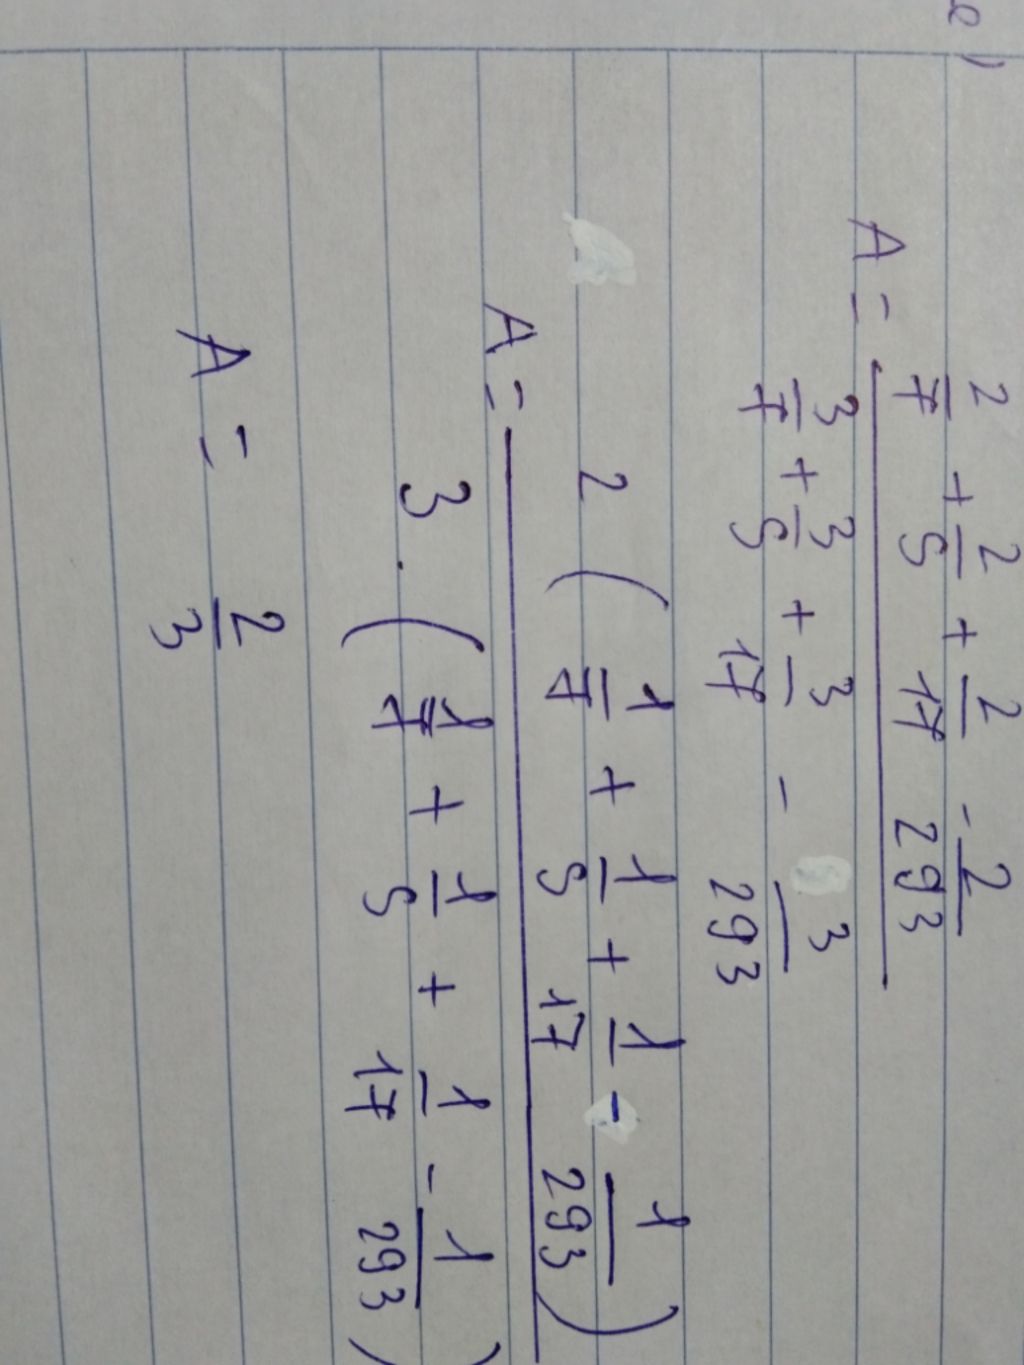 e)
A = \frac{\frac{2}{7} + \frac{2}{5} + \frac{2}{17} - \frac{2}{293}}{\frac{3}{7} + \frac{3}{5} + \frac{3}{17} - \frac{3}{293}}
A = \frac{2 (\frac{1}{7} + \frac{1}{5} + \frac{1}{17} - \frac{1}{293})}{3 . (\frac{1}{7} + \frac{1}{5} + \frac{1}{17} - \frac{1}{293})}
A = \frac{2}{3}